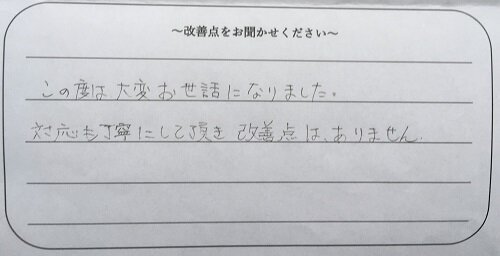 ～改善点をお聞かせください～
この度は大変お世話になりました。
対応も丁寧にして頂き改善点は、ありません.